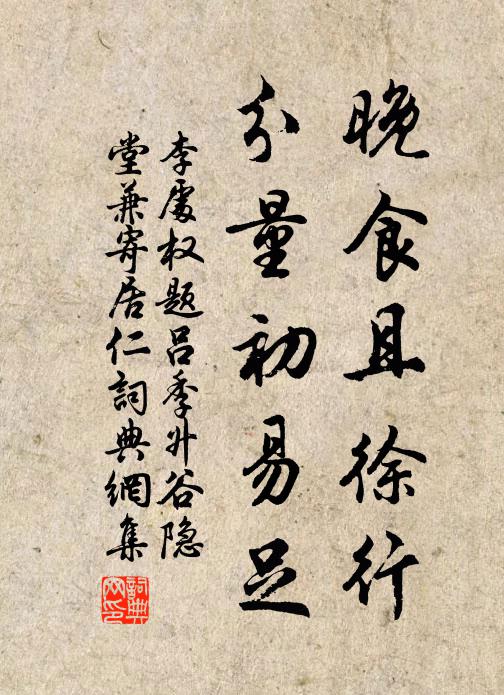 晚食且徐行
分量初易足
李處权题吕季升谷隐
堂兼寄居仁詞典網集
詞典网印